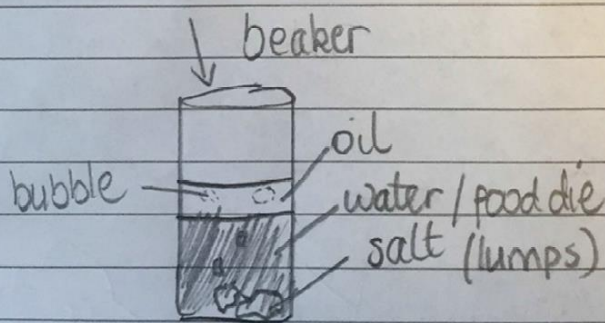 beaker
oil
bubble
water/food die
salt (lumps)